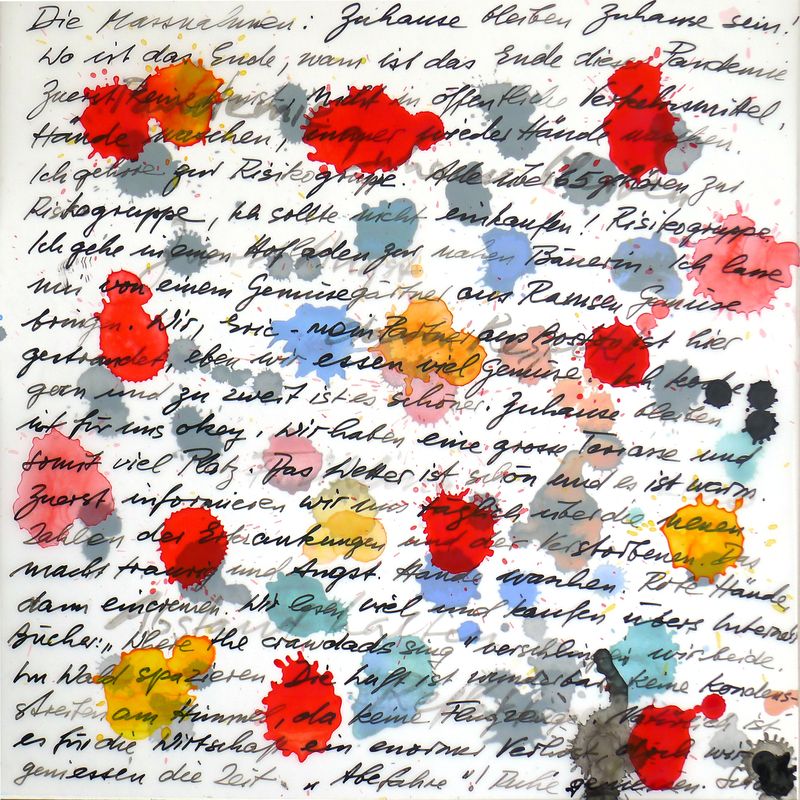 Die Massnahmen: Zuhause bleiben Zuhause sein!
Wo ist das Ende, wann ist das Ende dieser Pandemie
Zuerst keine Kunst, nicht in öffentliche Verkehrsmittel,
Hände waschen, immer wieder Hände waschen.
Ich gehöre zur Risikogruppe. Alle über 65 gehören zur
Risikogruppe, Ich sollte nicht einkaufen! Risikogruppe.
Ich gehe in einen Hofladen zur nahen Bäuerin. Ich lasse
mir von einem Gemüsegärtner aus Ramsen Gemüse
bringen. Wir, Eric - mein Partner aus Boston ist hier
gestrandet, eben wir essen viel Gemüse. Ich koche
gern und zu zweit ist es schöner. Zuhause bleiben
ist für uns okey, wir haben eine grosse Terrasse und
somit viel Platz. Das Wetter ist schön und es ist warm.
Zuerst informieren wir uns täglich über die neuen
Zahlen der Erkrankungen und der Verstorbenen. Das
macht traurig und Angst. Hände waschen Rote Hände
dann eincremen. Wir lesen viel und kaufen übers Internet
Bücher: „Where the crawdads sing" verschlingen wir beide.
Im Wald spazieren. Die Luft ist wunderbar, keine Kondens-
streifen am Himmel, da keine Flugzeuge. Natürlich ist
es für die Wirtschaft ein enormer Verlust, doch wir
geniessen die Zeit. „Abefahre"! Ruhe geniessen.
Abstand halten